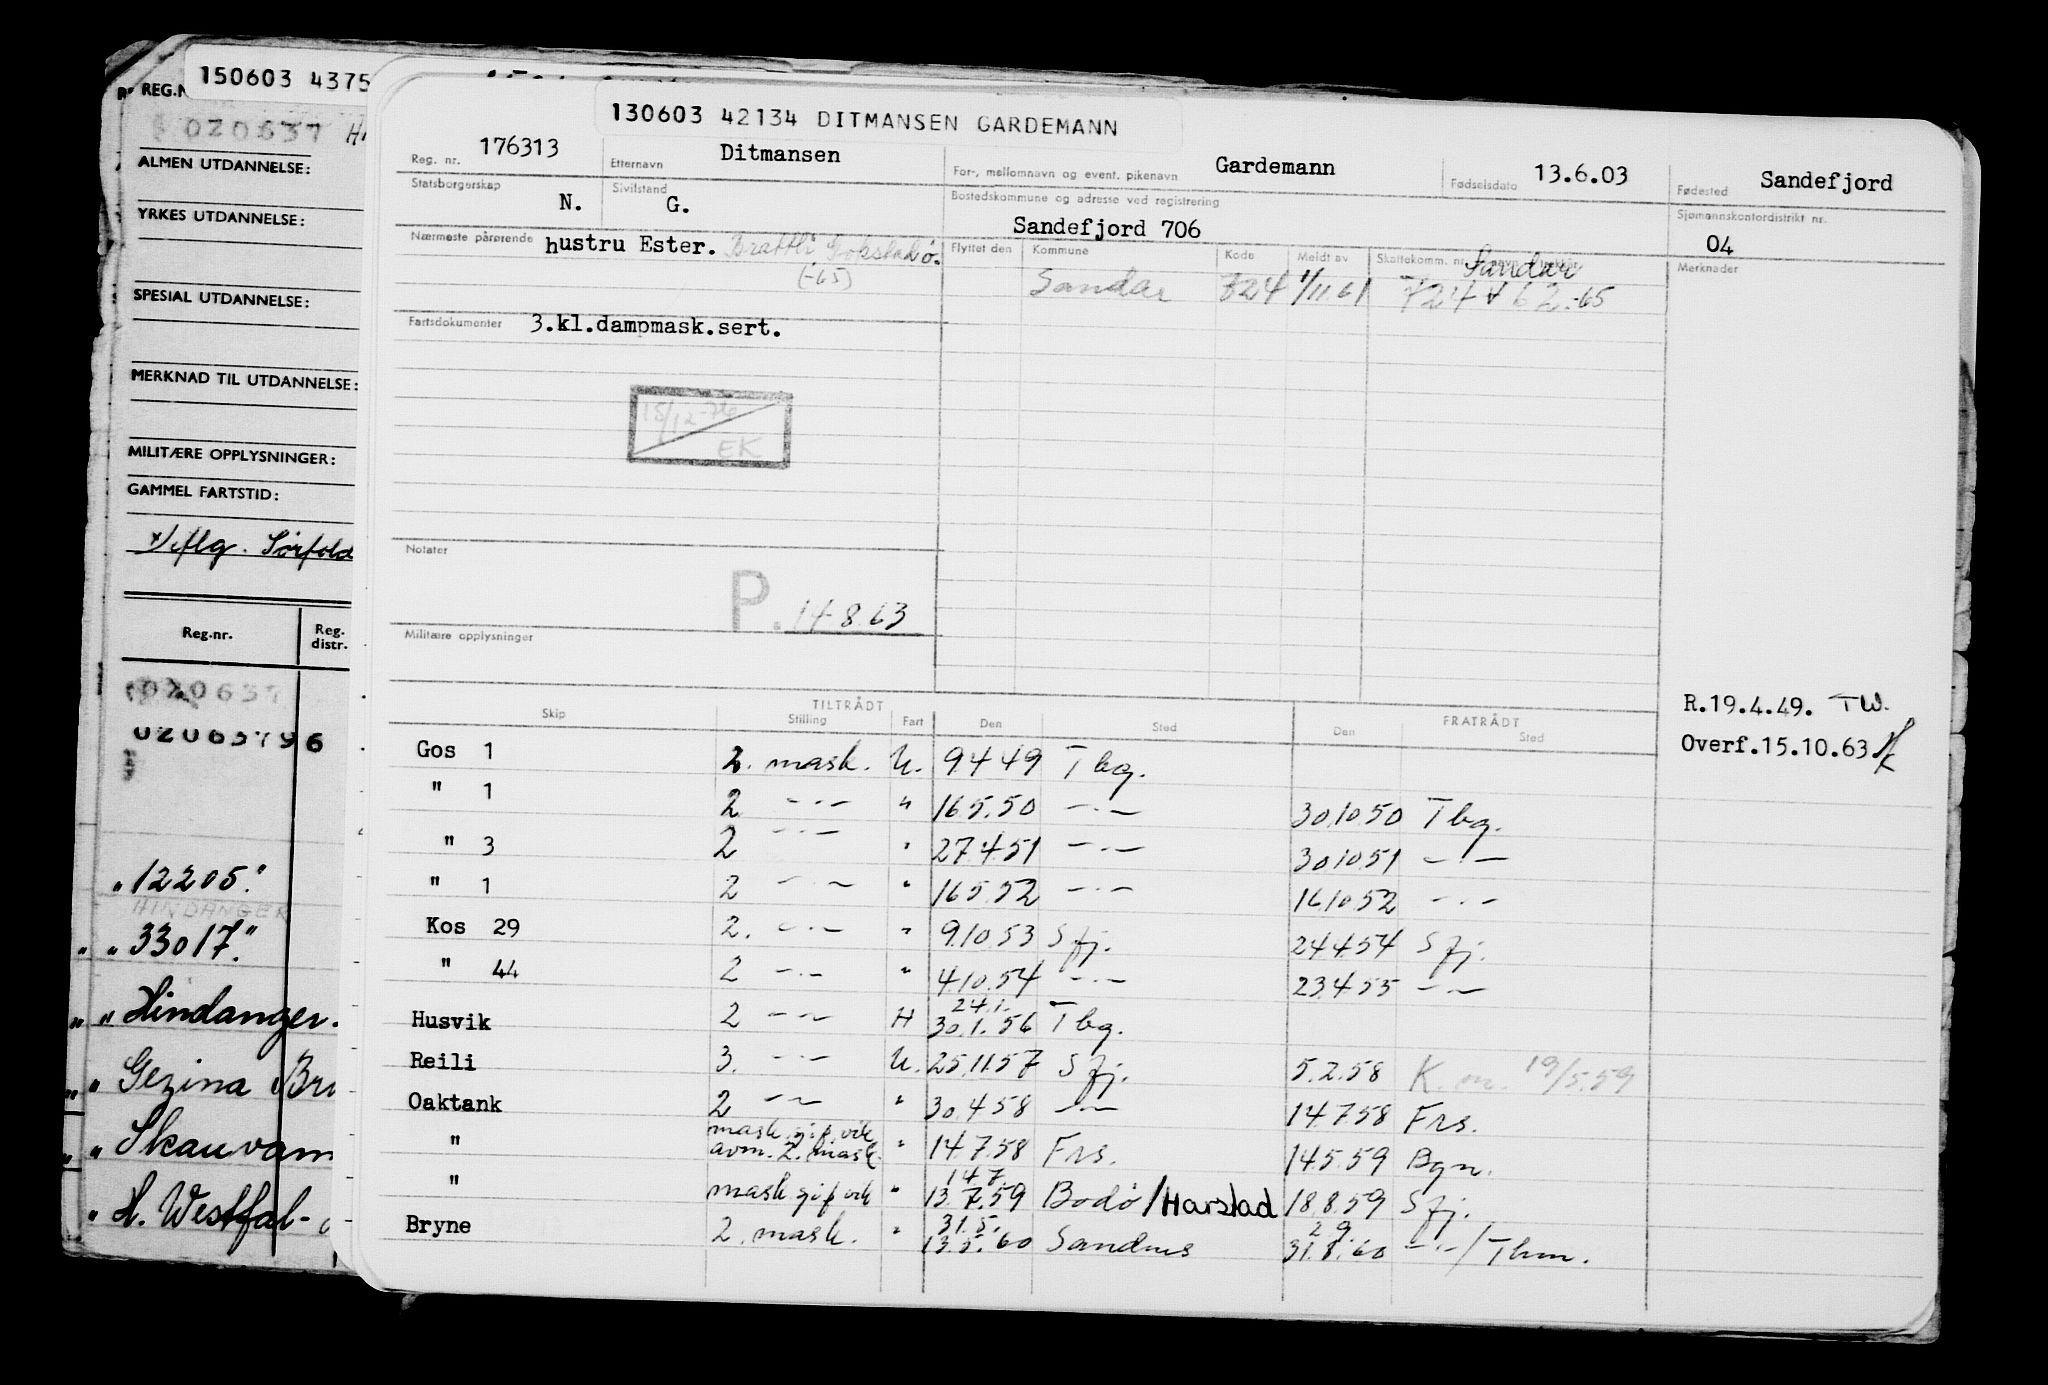 150603 4375
REG.N
020637 H
ALMEN UTDANNELSE:
YRKES UTDANNELSE:
SPESIAL UTDANNELSE:
MERKNAD TIL UTDANNELSE:
MILITÆRE OPPLYSNINGER:
GAMMEL FARTSTID:
Sørfold
Reg.nr. Reg. distr.
020637
"12205."
HINDANGER
" "33017."
" " Hindanger.
" " Gezina Br
" " Skauvam
" H. Westfal-
130603 42134 DITMANSEN GARDEMANN
Reg. nr. 176313 Etternavn Ditmansen For-, mellomnavn og event. pikenavn Gardemann Fødselsdato 13.6.03 Fødested Sandefjord
Statsborgerskap N. Sivilstand G. Bostedskommune og adresse ved registrering Sandefjord 706 Sjømannskontordistrikt nr. 04
Nærmeste pårørende hustru Ester. Brattli
(-65)
Flyttet den Kommune Kode Meldt av Skattekomm. nr. Merknader
Sandar
Sandar 724 1/11.61 724 62.-65
Fartsdokumenter 3.kl.dampmask.sert.
15/12-76
EK
Notater
P. 14-8.63
Militære opplysninger
R.19.4.49. TW.
Overf.15.10.63
TILTRÅDT FRATRÅDT
Skip Stilling Fart Den Sted Den Sted
Gos 1 2. mask. U. 9449 Tbg.
" 1 2 -·- " 16.5.50 -·- 30.10.50 Tbg.
" 3 2 -·- " 27.4.51 -·- 30.10.51 -·-
" 1 2 -·- " 16.5.52 -·- 16.10.52 -·-
Kos 29 2. -·- " 9.10.53 Sfj. 24.4.54 Sfj.
" 44 2 -·- " 4.10.54 -·- 23.4.55 -·-
24.1.
Husvik 2 -·- H 30.1.56 Tbg.
Reili 3. -·- U. 25.11.57 Sfj. 5.2.58 K. m. 19/5.59
Oaktank 2 -·- " 30.4.58 -·- 14.7.58 Frs.
" mask.gj.f.vik
avm. 2. mask. " 14.7.58 Frs. 14.5.59 Bgn.
14.7.
" mask gj f vik " 13.7.59 Bodø/Harstad 18.8.59 Sfj.
31.5. 2 9.
Bryne 2. mask. " 13.5.60 Sandnes 31.8.60 -·-/Thm.